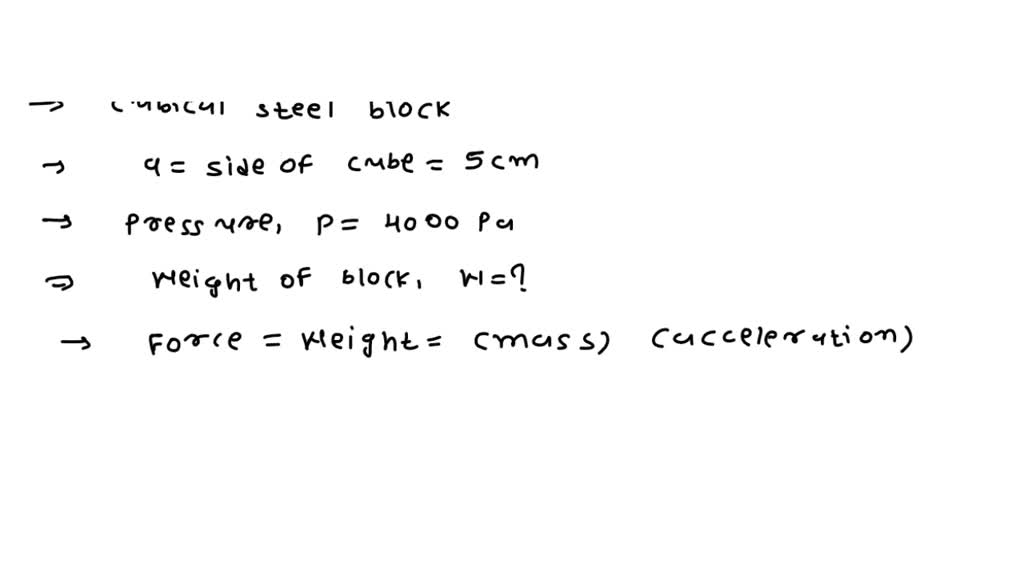 → cubical steel block
→ a = side of cube = 5cm
→ Pressure, P = 4000 Pa
⇒ Weight of block, W = ?
→ Force = Weight = (mass) (acceleration)